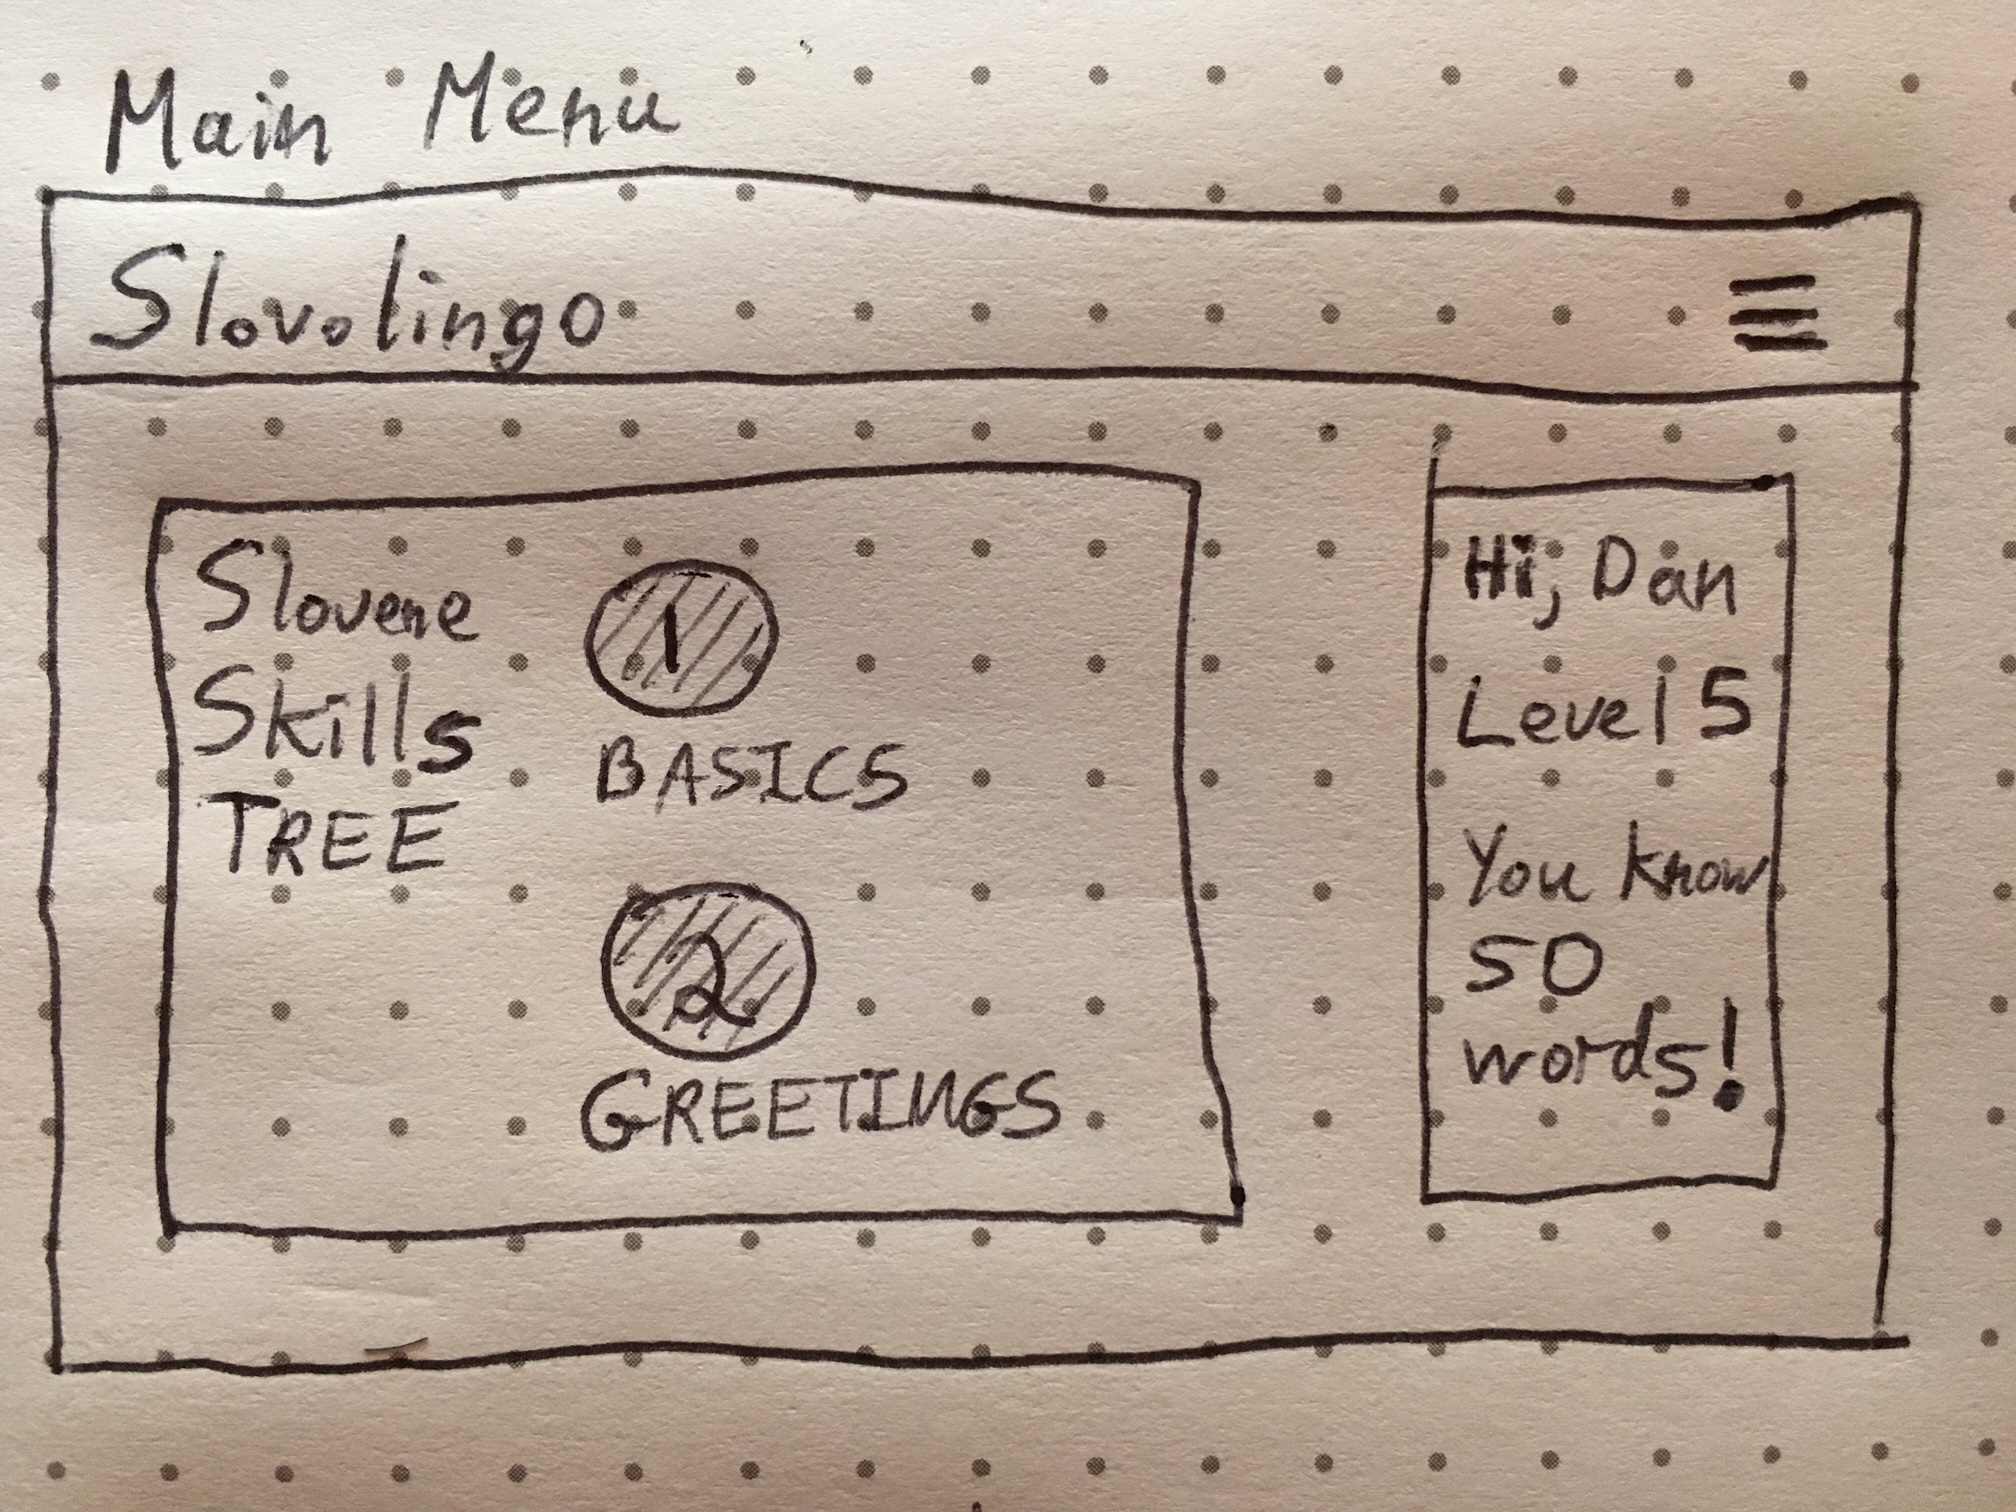 Main Menu
Slovolingo
Slovene
Skills
TREE
1
BASICS
2
GREETINGS
Hi, Dan
Level 5
You know
50
words!